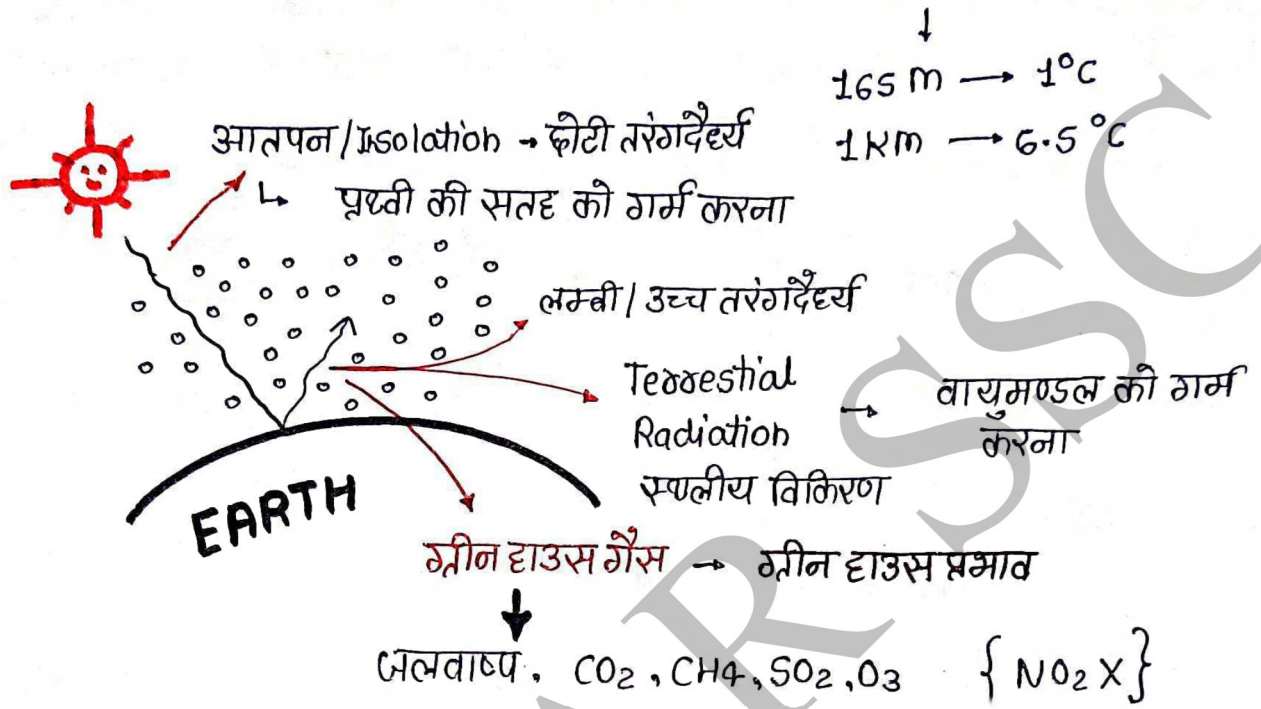 ↓
165 m → 1°C
1 Km → 6.5°C
आतपन/Insolation → छोटी तरंगदैर्ध्य
↳ पृथ्वी की सतह को गर्म करना
लम्बी/उच्च तरंगदैर्ध्य
Terrestial
Radiation
स्थलीय विकिरण
→ वायुमण्डल को गर्म
करना
EARTH
ग्रीन हाउस गैस → ग्रीन हाउस प्रभाव
↓
जलवाष्प, CO2, CH4, SO2, O3 { NO2 X }
R SSC